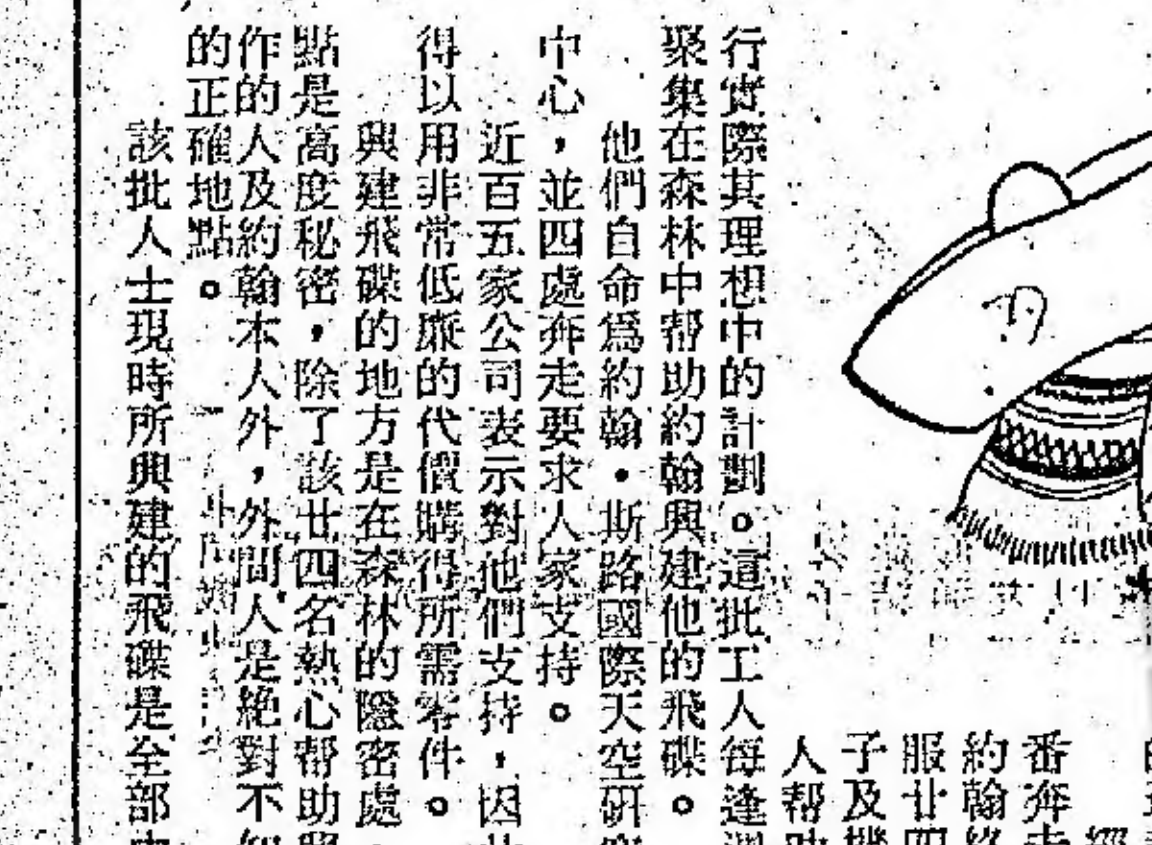 經
番奔走
約翰終
服廿四
子及機
人帮助
行實際其理想中的計劃。這批工人每逢週
聚集在森林中帮助約翰興建他的飛碟。
他們自命爲約翰・斯路國際天空研究
中心，並四處奔走要求人家支持。
近百五家公司表示對他們支持，因此
得以用非常低廉的代價購得所需零件。
興建飛碟的地方是在森林的隱密處，
點是高度秘密，除了該廿四名熱心帮助興
作的人及約翰本人外，外間人是絕對不知
的正確地點。
該批人士現時所興建的飛碟是全部由